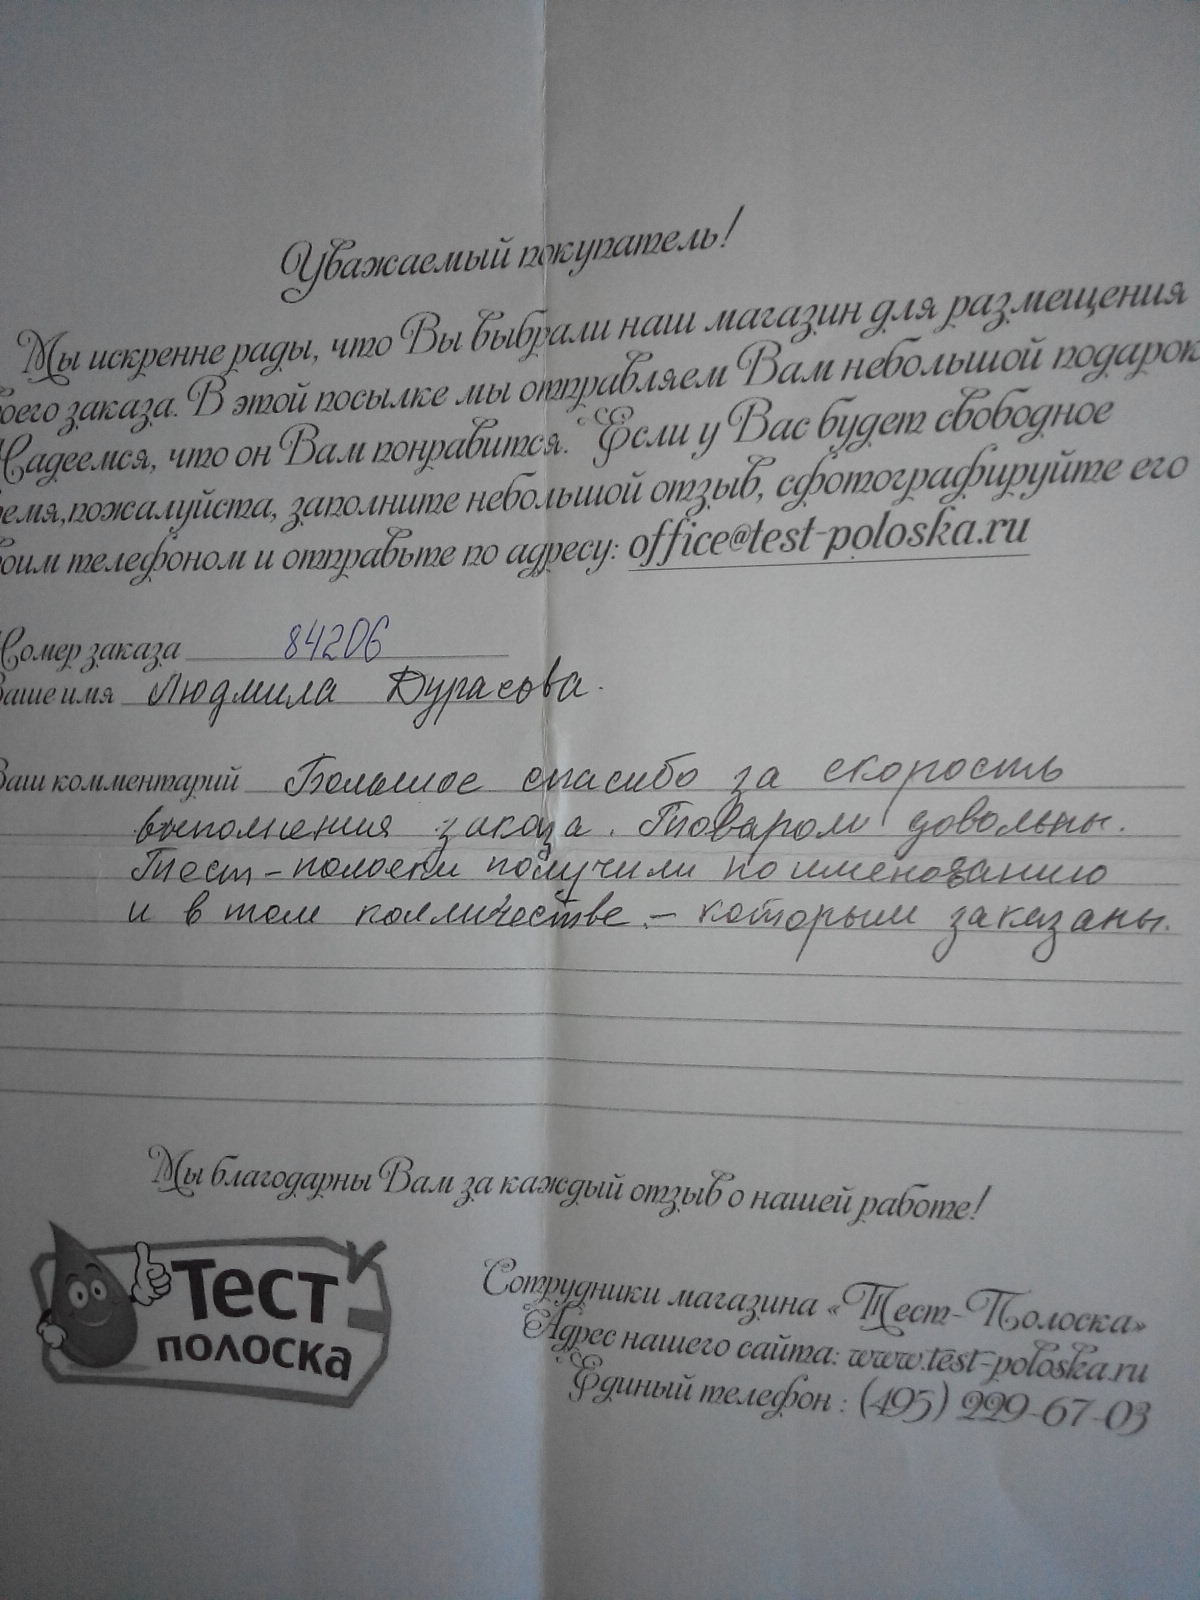 Уважаемый покупатель!
Мы искренне рады, что Вы выбрали наш магазин для размещения
оего заказа. В этой посылке мы отправляем Вам небольшой подарок
Надеемся, что он Вам понравится. Если у Вас будет свободное
емя,пожалуйста, заполните небольшой отзыв, сфотографируйте его
оим телефоном и отправьте по адресу: office@test-poloska.ru
Номер заказа 84206
Ваше имя Людмила Дурасова.
Ваш комментарий Большое спасибо за скорость
выполнения заказа. Товаром довольны.
Тест-полоски получили по именованию
и в том колличестве - которым заказаны.
Мы благодарны Вам за каждый отзыв о нашей работе!
Тест
полоска
Сотрудники магазина «Тест-Полоска»
Адрес нашего сайта: www.test-poloska.ru
Единый телефон : (495) 229-67-03